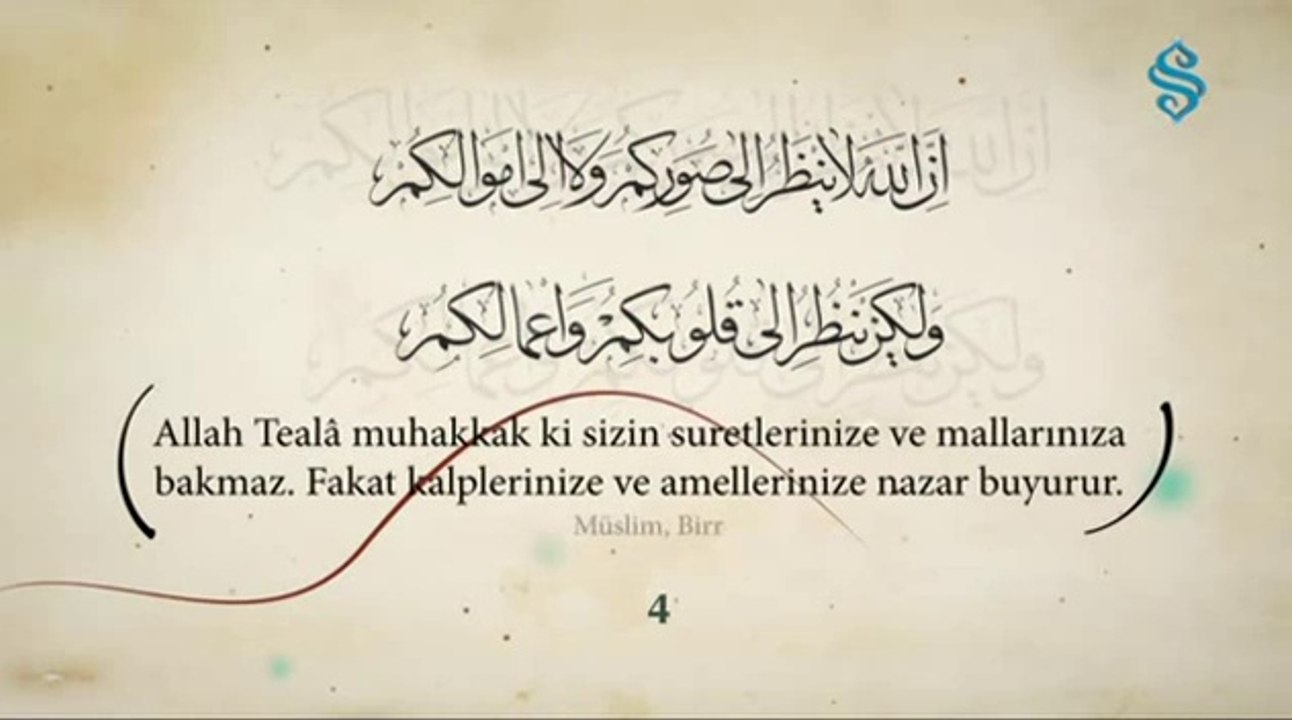 اِنَّ اللّٰهَ لَا يَنْظُرُ اِلٰى صُوَرِكُمْ وَلَا اِلٰى اَمْوَالِكُمْ
وَلٰكِنْ يَنْظُرُ اِلٰى قُلُوبِكُمْ وَاَعْمَالِكُمْ
Allah Tealâ muhakkak ki sizin suretlerinize ve mallarınıza
bakmaz. Fakat kalplerinize ve amellerinize nazar buyurur.
Müslim, Birr
4